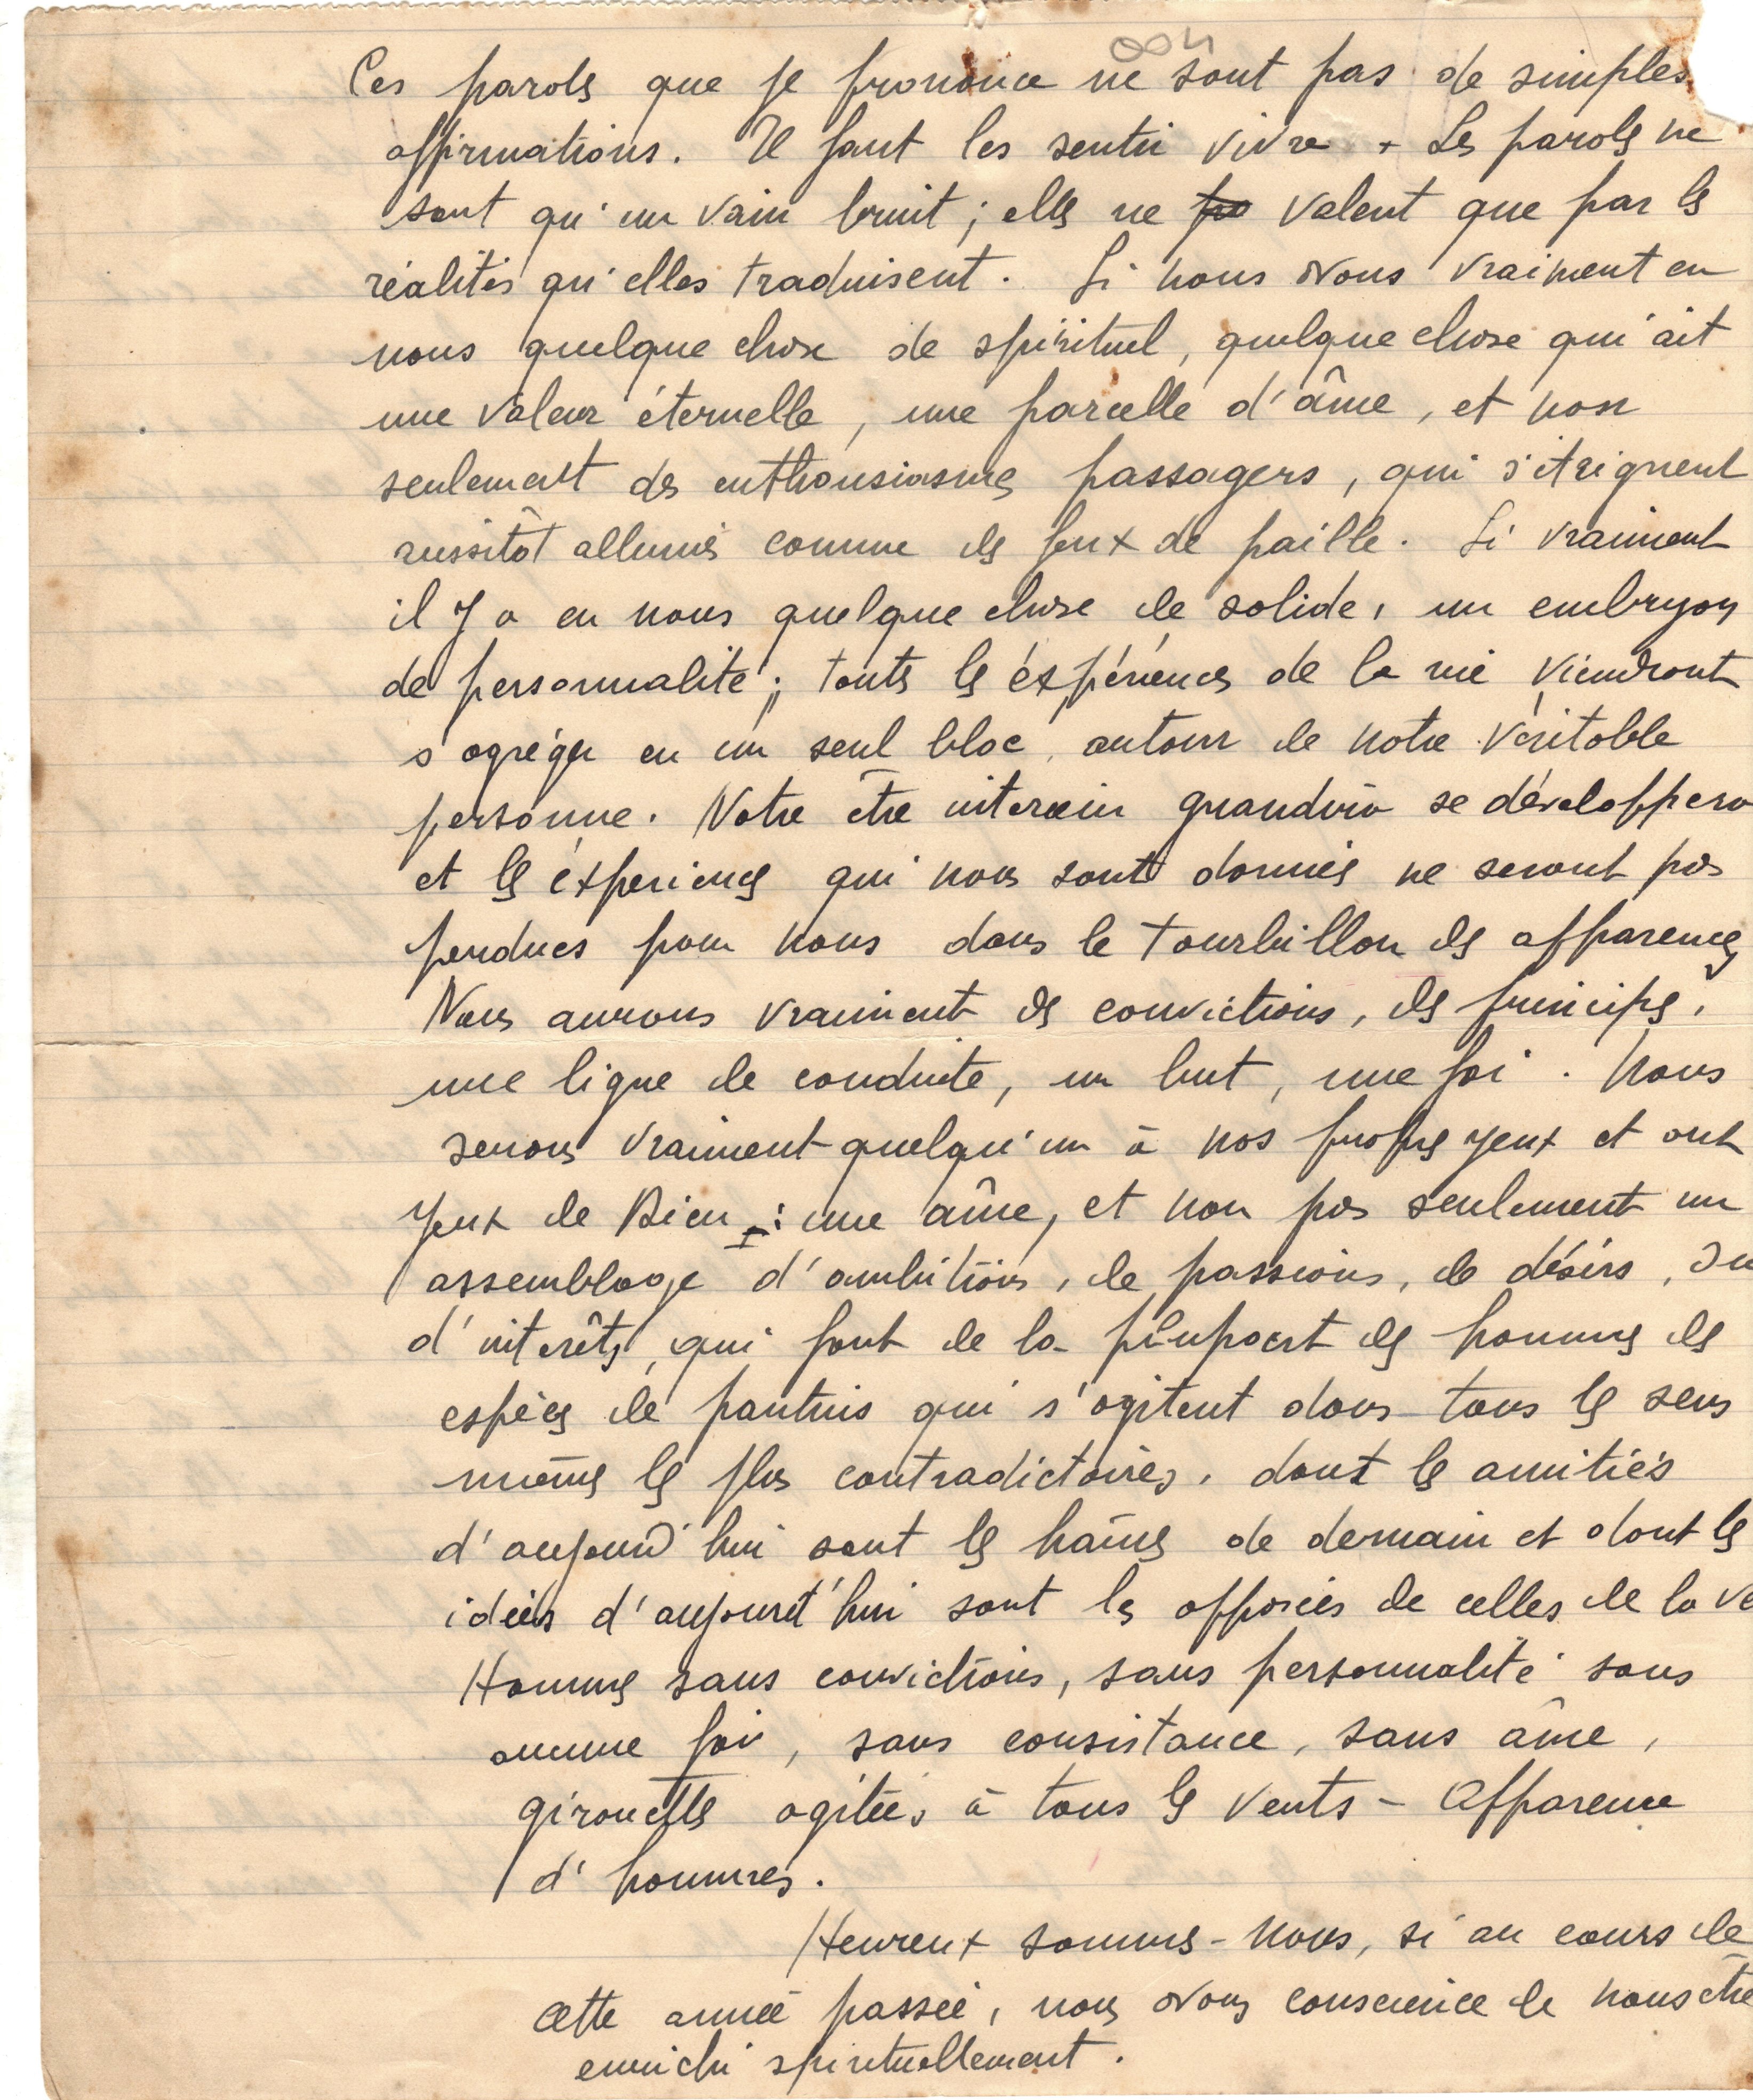 Ces paroles que je prononce ne sont pas de simples
affirmations. Il faut les sentir vivre. Les paroles ne
sont qu'un vain bruit ; elles ne valent que par les
réalités qu'elles traduisent. Si nous avons vraiment en
nous quelque chose de spirituel, quelque chose qui ait
une valeur éternelle, une parcelle d'âme, et non
seulement des enthousiasmes passagers, qui s'éteignent
aussitôt allumés comme des feux de paille. Si vraiment
il y a en nous quelque chose de solide, un embryon
de personnalité ; toutes les éxpériences de la vie viendront
s'agréger en un seul bloc, autour de notre véritable
personne. Notre être interieur grandira se développera
et les éxperiences qui nous sont données ne seront pas
perdues pour nous dans le tourbillon des apparences,
Nous aurons vraiment des convictions, des principes,
une ligne de conduite, un but, une foi. Nous
serons vraiment quelqu'un à nos propres yeux et aux
yeux de Dieu : une âme, et non pas seulement un
assemblage d'ambitions, de passions, de désirs, ou
d'interêts, qui font de la plupart des hommes des
espèces de pantins qui s'agitent dans tous les sens
mêmes les plus contradictoires, dont les amitiés
d'aujourd'hui sont les haînes de demain et dont les
idées d'aujourd'hui sont les opposées de celles de la ve
Hommes sans convictions, sans personnalité sans
aucune foi, sans consistance, sans âme,
girouettes agitées à tous les vents - Apparence
d'hommes.
Heureux sommes-nous, si au cours de
cette année passée, nous avons conscience de nous être
enrichi spirituellement.